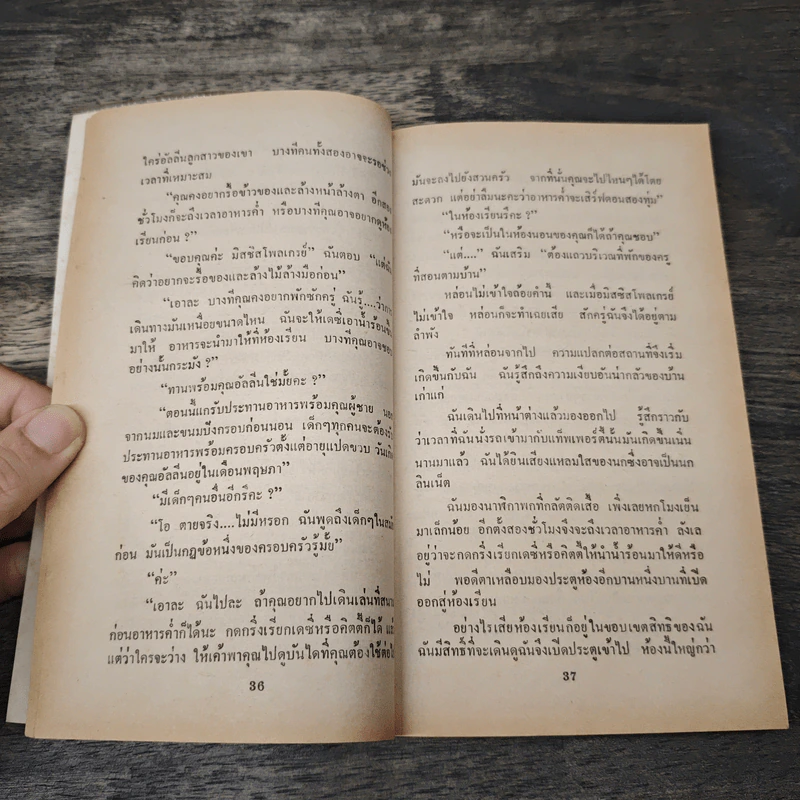 ใคร่อัลลีนลูกสาวของเขา บางทีคนทั้งสองอาจจะรอช่วง
เวลาที่เหมาะสม
“คุณคงอยากรื้อข้าวของและล้างหน้าล้างตา อีกสอง
ชั่วโมงก็จะถึงเวลาอาหารค่ำ หรือบางทีคุณอาจอยากดูห้อง
เรียนก่อน ?”
“ขอบคุณค่ะ มิสซิสโพลเกรย์” ฉันตอบ “แต่ฉัน
คิดว่าอยากจะรื้อของและล้างไม้ล้างมือก่อน”
“เอาละ บางทีคุณคงอยากพักซักครู่ ฉันรู้....ว่าการ
เดินทางมันเหนื่อยขนาดไหน ฉันจะให้เดซี่เอาน้ำร้อนขึ้น
มาให้ อาหารจะนำมาให้ที่ห้องเรียน บางทีคุณอาจชอบ
อย่างนั้นกระมัง ?”
“ทานพร้อมคุณอัลลีนใช่มั้ยคะ ?”
“ตอนนี้แกรับประทานอาหารพร้อมคุณผู้ชาย นอก
จากนมและขนมปังกรอบก่อนนอน เด็กๆทุกคนจะต้องรับ
ประทานอาหารพร้อมครอบครัวตั้งแต่อายุแปดขวบ วันเกิด
ของคุณอัลลีนอยู่ในเดือนพฤษภา”
“มีเด็กๆคนอื่นอีกรึคะ ?”
“โอ ตายจริง....ไม่มีหรอก ฉันพูดถึงเด็กๆในสมัย
ก่อน มันเป็นกฎข้อหนึ่งของครอบครัวรู้มั้ย”
“ค่ะ”
“เอาละ ฉันไปละ ถ้าคุณอยากไปเดินเล่นที่สนาม
ก่อนอาหารค่ำก็ได้นะ กดกริ่งเรียกเดซี่หรือคิตตี้ก็ได้ แล้ว
แต่ว่าใครจะว่าง ให้เค้าพาคุณไปดูบันไดที่คุณต้องใช้ต่อไป
36
มันจะลงไปยังสวนครัว จากที่นั่นคุณจะไปไหนๆได้โดย
สะดวก แต่อย่าลืมนะคะว่าอาหารค่ำจะเสิร์ฟตอนสองทุ่ม”
“ในห้องเรียนรึคะ ?”
“หรือจะเป็นในห้องนอนของคุณก็ได้ถ้าคุณชอบ”
“แต่....” ฉันเสริม “ต้องแถวบริเวณที่พักของครู
ที่สอนตามบ้าน”
หล่อนไม่เข้าใจถ้อยคำนี้ และเมื่อมิสซิสโพลเกรย์
ไม่เข้าใจ หล่อนก็จะทำเฉยเสีย สักครู่ฉันจึงได้อยู่ตาม
ลำพัง
ทันทีที่หล่อนจากไป ความแปลกต่อสถานที่จึงเริ่ม
เกิดขึ้นกับฉัน ฉันรู้สึกถึงความเงียบอันน่ากลัวของบ้าน
เก่าแก่
ฉันเดินไปที่หน้าต่างแล้วมองออกไป รู้สึกราวกับ
ว่าเวลาที่ฉันนั่งรถเข้ามากับแท็พเพอร์ตี้นั้นมันเกิดขึ้นเนิ่น
นานมาแล้ว ฉันได้ยินเสียงแหลมใสของนกซึ่งอาจเป็นนก
ลินเน็ต
ฉันมองนาฬิกาพกที่กลัดติดเสื้อ เพิ่งเลยหกโมงเย็น
มาเล็กน้อย อีกตั้งสองชั่วโมงจึงจะถึงเวลาอาหารค่ำ ลังเล
อยู่ว่าจะกดกริ่งเรียกเดซี่หรือคิตตี้ให้นำน้ำร้อนมาให้ดีหรือ
ไม่ พอดีตาเหลือบมองประตูห้องอีกบานหนึ่งบานที่เปิด
ออกสู่ห้องเรียน
อย่างไรเสียห้องเรียนก็อยู่ในขอบเขตสิทธิของฉัน
ฉันมีสิทธิ์ที่จะเดินดูฉันจึงเปิดประตูเข้าไป ห้องนี้ใหญ่กว่า
37